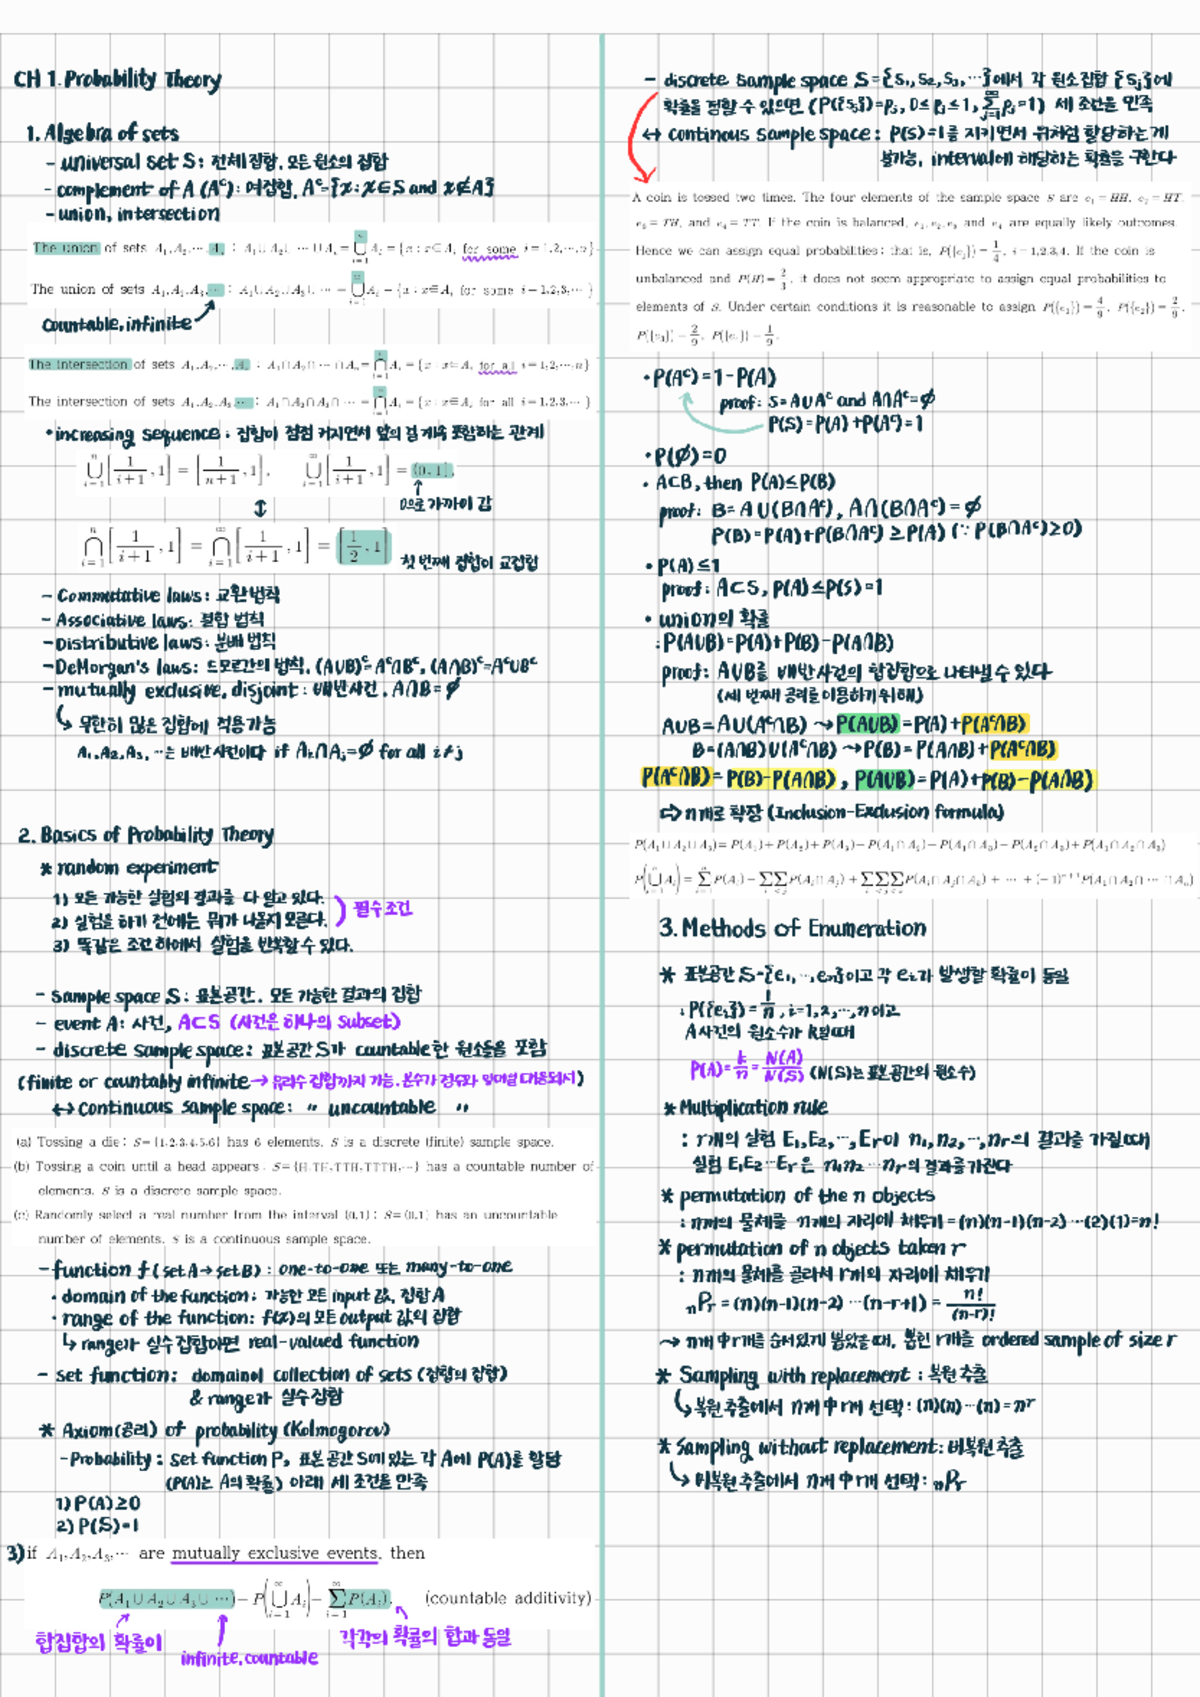 CH 1. Probability Theory
1. Algebra of sets
- universal set S: 전체집합. 모든 원소의 집합
- complement of A (Aᶜ): 여집합, Aᶜ={x : x∈S and x∉A}
- union, intersection
The union of sets A₁,A₂,⋯,Aₙ : A₁∪A₂∪⋯∪Aₙ = ⋃ᵢ₌₁ⁿ Aᵢ = {x : x∈Aᵢ for some i=1,2,⋯,n}
The union of sets A₁,A₂,A₃,⋯ : A₁∪A₂∪A₃∪⋯ = ⋃ᵢ₌₁^∞ Aᵢ = {x : x∈Aᵢ for some i=1,2,3,⋯}
countable, infinite
The intersection of sets A₁,A₂,⋯,Aₙ : A₁∩A₂∩⋯∩Aₙ = ⋂ᵢ₌₁ⁿ Aᵢ = {x : x∈Aᵢ for all i=1,2,⋯,n}
The intersection of sets A₁,A₂,A₃,⋯ : A₁∩A₂∩A₃∩⋯ = ⋂ᵢ₌₁^∞ Aᵢ = {x : x∈Aᵢ for all i=1,2,3,⋯}
• increasing sequence : 집합이 점점 커지면서 앞의 걸 계속 포함하는 관계
⋃ᵢ₌₁ⁿ [1/(i+1), 1] = [1/(n+1), 1], ⋃ᵢ₌₁^∞ [1/(i+1), 1] = (0, 1],
↕ 0으로 가까이 감
⋂ᵢ₌₁ⁿ [1/(i+1), 1] = ⋂ᵢ₌₁^∞ [1/(i+1), 1] = [1/2, 1]
첫 번째 집합이 교집합
- Commutative laws: 교환법칙
- Associative laws: 결합 법칙
- Distributive laws: 분배 법칙
- DeMorgan's laws: 드모르간의 법칙, (A∪B)ᶜ=Aᶜ∩Bᶜ, (A∩B)ᶜ=Aᶜ∪Bᶜ
- mutually exclusive, disjoint : 배반사건. A∩B=∅
↳ 무한히 많은 집합에 적용가능
A₁,A₂,A₃,⋯는 배반사건이다 if Aᵢ∩Aⱼ=∅ for all i≠j
2. Basics of Probability Theory
* random experiment
1) 모든 가능한 실험의 결과를 다 알고 있다.
2) 실험을 하기 전에는 뭐가 나올지 모른다. ) 필수조건
3) 똑같은 조건 하에서 실험을 반복할 수 있다.
- Sample space S : 표본공간. 모든 가능한 결과의 집합
- event A: 사건, A⊂S (사건은 하나의 subset)
- discrete sample space: 표본공간 S가 countable한 원소들을 포함
(finite or countably infinite → 유리수 집합까지 가능. 분수가 정수와 일대일 대응돼서)
↔ Continuous sample space: " uncountable "
(a) Tossing a die: S={1,2,3,4,5,6} has 6 elements. S is a discrete (finite) sample space.
(b) Tossing a coin until a head appears. S={H,TH,TTH,TTTH,⋯} has a countable number of
elements. S is a discrete sample space.
(c) Randomly select a real number from the interval (0,1): S=(0,1) has an uncountable
number of elements. S is a continuous sample space.
- function f (set A→set B) : one-to-one 또는 many-to-one
• domain of the function: 가능한 모든 input 값, 집합 A
• range of the function: f(x)의 모든 output 값의 집합
↳ range가 실수집합이면 real-valued function
- set function: domain이 collection of sets (집합의 집합)
& range가 실수집합
* Axiom(공리) of probability (Kolmogorov)
- Probability : set function P, 표본공간 S에 있는 각 A에 P(A)를 할당
(P(A)는 A의 확률) 아래 세 조건을 만족
1) P(A)≥0
2) P(S)=1
3) if A₁,A₂,A₃,⋯ are mutually exclusive events, then
P(A₁∪A₂∪A₃∪⋯) = P(⋃ᵢ₌₁^∞ Aᵢ) = ∑ᵢ₌₁^∞ P(Aᵢ). (countable additivity)
합집합의 확률이 infinite, countable 각각의 확률의 합과 동일
- discrete sample space S={s₁,s₂,s₃,⋯}에서 각 원소집합 {sⱼ}에
확률을 정할 수 있으면 (P({sⱼ})=pⱼ, 0≤pⱼ≤1, ∑ⱼ₌₁^∞ pⱼ=1) 세 조건을 만족
↔ continous sample space: P(S)=1을 지키면서 위처럼 할당하는 게
불가능, interval에 해당하는 확률을 구한다
A coin is tossed two times. The four elements of the sample space S are e₁=HH, e₂=HT,
e₃=TH, and e₄=TT. If the coin is balanced, e₁, e₂, e₃ and e₄ are equally likely outcomes.
Hence we can assign equal probabilities: that is, P({eᵢ})=1/4, i=1,2,3,4. If the coin is
unbalanced and P(H)=2/3, it does not seem appropriate to assign equal probabilities to
elements of S. Under certain conditions it is reasonable to assign P({e₁})=4/9, P({e₂})=2/9,
P({e₃})=2/9, P({e₄})=1/9.
• P(Aᶜ)=1-P(A)
proof: S=A∪Aᶜ and A∩Aᶜ=∅
P(S)=P(A)+P(Aᶜ)=1
• P(∅)=0
• A⊂B, then P(A)≤P(B)
proof: B=A∪(B∩Aᶜ), A∩(B∩Aᶜ)=∅
P(B)=P(A)+P(B∩Aᶜ)≥P(A) (∵ P(B∩Aᶜ)≥0)
• P(A)≤1
proof: A⊂S, P(A)≤P(S)=1
• union의 확률
: P(A∪B)=P(A)+P(B)-P(A∩B)
proof: A∪B를 배반사건의 합집합으로 나타낼 수 있다
(세 번째 공리를 이용하기 위해)
A∪B=A∪(Aᶜ∩B) → P(A∪B)=P(A)+P(Aᶜ∩B)
B=(A∩B)∪(Aᶜ∩B) → P(B)=P(A∩B)+P(Aᶜ∩B)
P(Aᶜ∩B)=P(B)-P(A∩B), P(A∪B)=P(A)+P(B)-P(A∩B)
⇨ n개로 확장 (Inclusion-Exclusion formula)
P(A₁∪A₂∪A₃)=P(A₁)+P(A₂)+P(A₃)-P(A₁∩A₂)-P(A₁∩A₃)-P(A₂∩A₃)+P(A₁∩A₂∩A₃)
P(⋃ᵢ₌₁ⁿ Aᵢ)=∑ᵢ₌₁ⁿ P(Aᵢ)-∑∑P(Aᵢ∩Aⱼ)+∑∑∑P(Aᵢ∩Aⱼ∩Aₖ)+⋯+(-1)ⁿ⁺¹P(A₁∩A₂∩⋯∩Aₙ)
3. Methods of Enumeration
* 표본공간 S={e₁,⋯,eₙ}이고 각 eᵢ가 발생할 확률이 동일
: P({eᵢ})=1/n, i=1,2,⋯,n이고
A사건의 원소수가 k일 때
P(A)=k/n=N(A)/N(S) (N(S)는 표본공간의 원소수)
* Multiplication rule
: r개의 실험 E₁,E₂,⋯,Eᵣ이 n₁,n₂,⋯,nᵣ의 결과를 가질 때
실험 E₁E₂⋯Eᵣ은 n₁n₂⋯nᵣ의 결과를 가진다
* permutation of the n objects
: n개의 물체를 n개의 자리에 채우기=(n)(n-1)(n-2)⋯(2)(1)=n!
* permutation of n objects taken r
: n개의 물체를 골라서 r개의 자리에 채우기
ₙPᵣ=(n)(n-1)(n-2)⋯(n-r+1)=n!/(n-r)!
→ n개 中 r개를 순서있게 뽑았을 때, 뽑힌 r개를 ordered sample of size r
* Sampling with replacement : 복원추출
↳ 복원추출에서 n개 中 r개 선택: (n)(n)⋯(n)=nʳ
* Sampling without replacement: 비복원추출
↳ 비복원추출에서 n개 中 r개 선택: ₙPᵣ